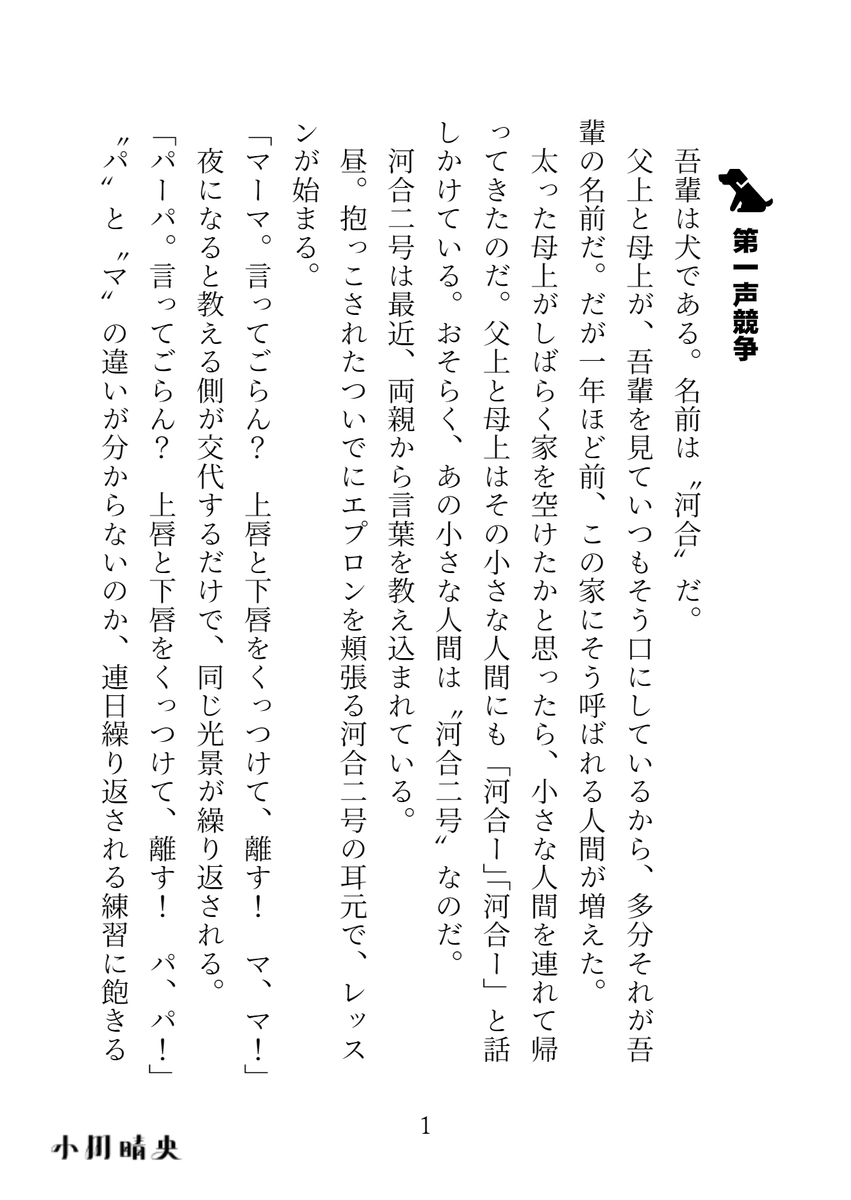 第一声競争
吾輩は犬である。名前は〝河合〟だ。
父上と母上が、吾輩を見ていつもそう口にしているから、多分それが吾
輩の名前だ。だが一年ほど前、この家にそう呼ばれる人間が増えた。
太った母上がしばらく家を空けたかと思ったら、小さな人間を連れて帰
ってきたのだ。父上と母上はその小さな人間にも「河合ー」「河合ー」と話
しかけている。おそらく、あの小さな人間は〝河合二号〟なのだ。
河合二号は最近、両親から言葉を教え込まれている。
昼。抱っこされたついでにエプロンを頬張る河合二号の耳元で、レッス
ンが始まる。
「マーマ。言ってごらん？　上唇と下唇をくっつけて、離す！　マ、マ！」
夜になると教える側が交代するだけで、同じ光景が繰り返される。
「パーパ。言ってごらん？　上唇と下唇をくっつけて、離す！　パ、パ！」
〝パ〟と〝マ〟の違いが分からないのか、連日繰り返される練習に飽きる
1
小川晴央